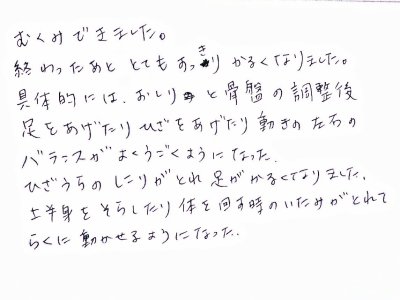 むくみできました。
終わったあと とてもすっきり かるくなりました。
具体的には、おしりと骨盤の調整後
足をあげたり ひざをあげたり 動きの左右の
バランスがよくうごくようになった。
ひざうらの しこりがとれ 足がかるくなりました。
上半身をそらしたり 体を回す時のいたみがとれて
らくに動かせるようになった。